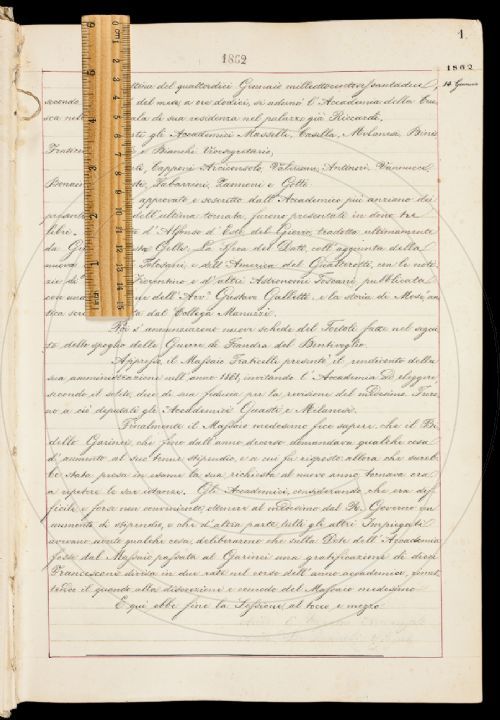 1.
1862
1862
14 Gennaio
ttina del quattordici Gennaio milleottocentosessantadue,
secondo del mese, a ore dodici, si adunò l'Accademia della Cru=
sca nel ala di sua residenza nel palazzo già Riccardi.
gli Accademici Masselli, Casella, Milanesi, Bini
Fraticelli e Bianchi Vicesegretario,
Capponi Arciconsolo, Valeriani, Vannucci
Bonaini Tabarrini, Zannoni e Gotti.
approvato e soscritto dall'Accademico più anziano dei
presenti dell'ultima tornata, furono presentate in dono tre
libri. d'Alfonso d'Este del tradotto ultimamente
da Grillo, La del Dati coll'aggiunta della
nuova e dell'America del Gualterotti, con le noti=
zie di Fiorentino e d'altri Astronomi Toscani pubblicata
con una dell'Avv. Gustavo Galletti, e la storia di Mosè, an
tica scri ta dal Collega Manuzzi.
Poi s'annunziarono nuove schede del Tortoli fatte nel segui
to dello spoglio della Guerra di Fiandra del Bentivoglio.
Appresso il Massaio Fraticelli presentò il rendiconto della
sua amministrazione nell'anno 1861, invitando l'Accademia ad eleggere,
secondo il solito, due di sua fiducia per la revisione del medesimo. Furo
no a ciò deputati gli Accademici Guasti e Milanesi.
Finalmente il Massaio medesimo fece sapere che il Bi
dello Garinei, che fino dall'anno decorso domandava qualche cosa
d'aumento al suo tenue stipendio, e a cui fu risposto allora che sareb
be stata presa in esame la sua richiesta al nuovo anno, tornava ora
a ripetere le sue istanze. Gli Accademici, considerando che era dif
ficile e forse non conveniente, ottenere al medesimo dal R. Governo un
aumento di stipendio, e che d'altra parte tutti gli altri Impiegati
avevano avuto qualche cosa, deliberarono che sulla Dote dell'Accademia
fosse dal Massaio passata al Garinei una gratificazione di dieci
Francesconi divisa in due rate nel corso dell'anno accademico, rimet
tendo il quando alla discrezione e comodo del Massaio medesimo.
E qui ebbe fine la Sessione al tocco e mezzo